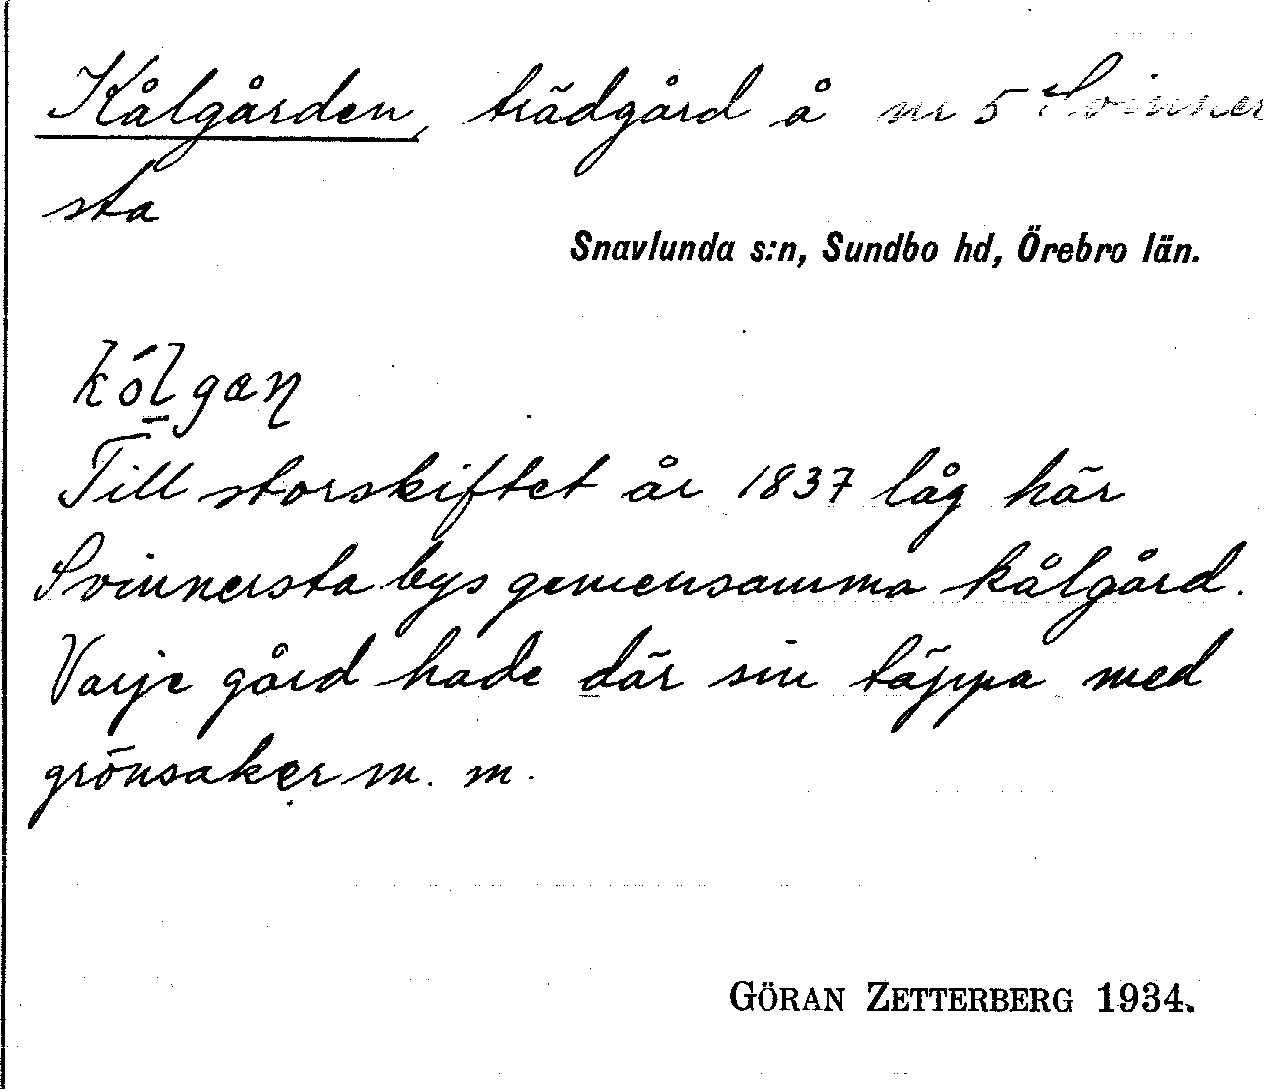 Kålgården, trädgård å nr 5 Svinner
sta
Snavlunda s:n, Sundbo hd, Örebro län.
kó̱lgaɳ
Till storskiftet år 1837 låg här
Svinnersta bys gemensamma kålgård.
Varje gård hade där sin täppa med
grönsaker m. m.
GÖRAN ZETTERBERG 1934.